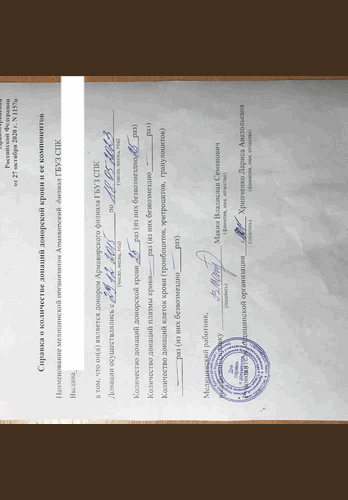 здравоохранения
Российской Федерации
от 27 октября 2020 г. N 1157н
Справка о количестве донаций донорской крови и ее компонентов
Наименование медицинской организации Армавирский филиал ГБУЗ СПК
Выдана
в том, что он(а) является донором Армавирского филиала ГБУЗ СПК
Донации осуществлялись с по
(число, месяц, год) (число, месяц, год)
Количество донаций донорской крови 25 раз (из них безвозмездно 25 раз)
Количество донаций плазмы крови раз (из них безвозмездно раз)
Количество донаций клеток крови (тромбоцитов, эритроцитов, гранулоцитов)
раз (из них безвозмездно раз).
Медицинский работник,
справку Макян Владислав Семенович
(подпись) (фамилия, имя, отчество)
медицинской организации Хрипченко Лариса Анатольевна
(подпись) (фамилия, имя, отчество)